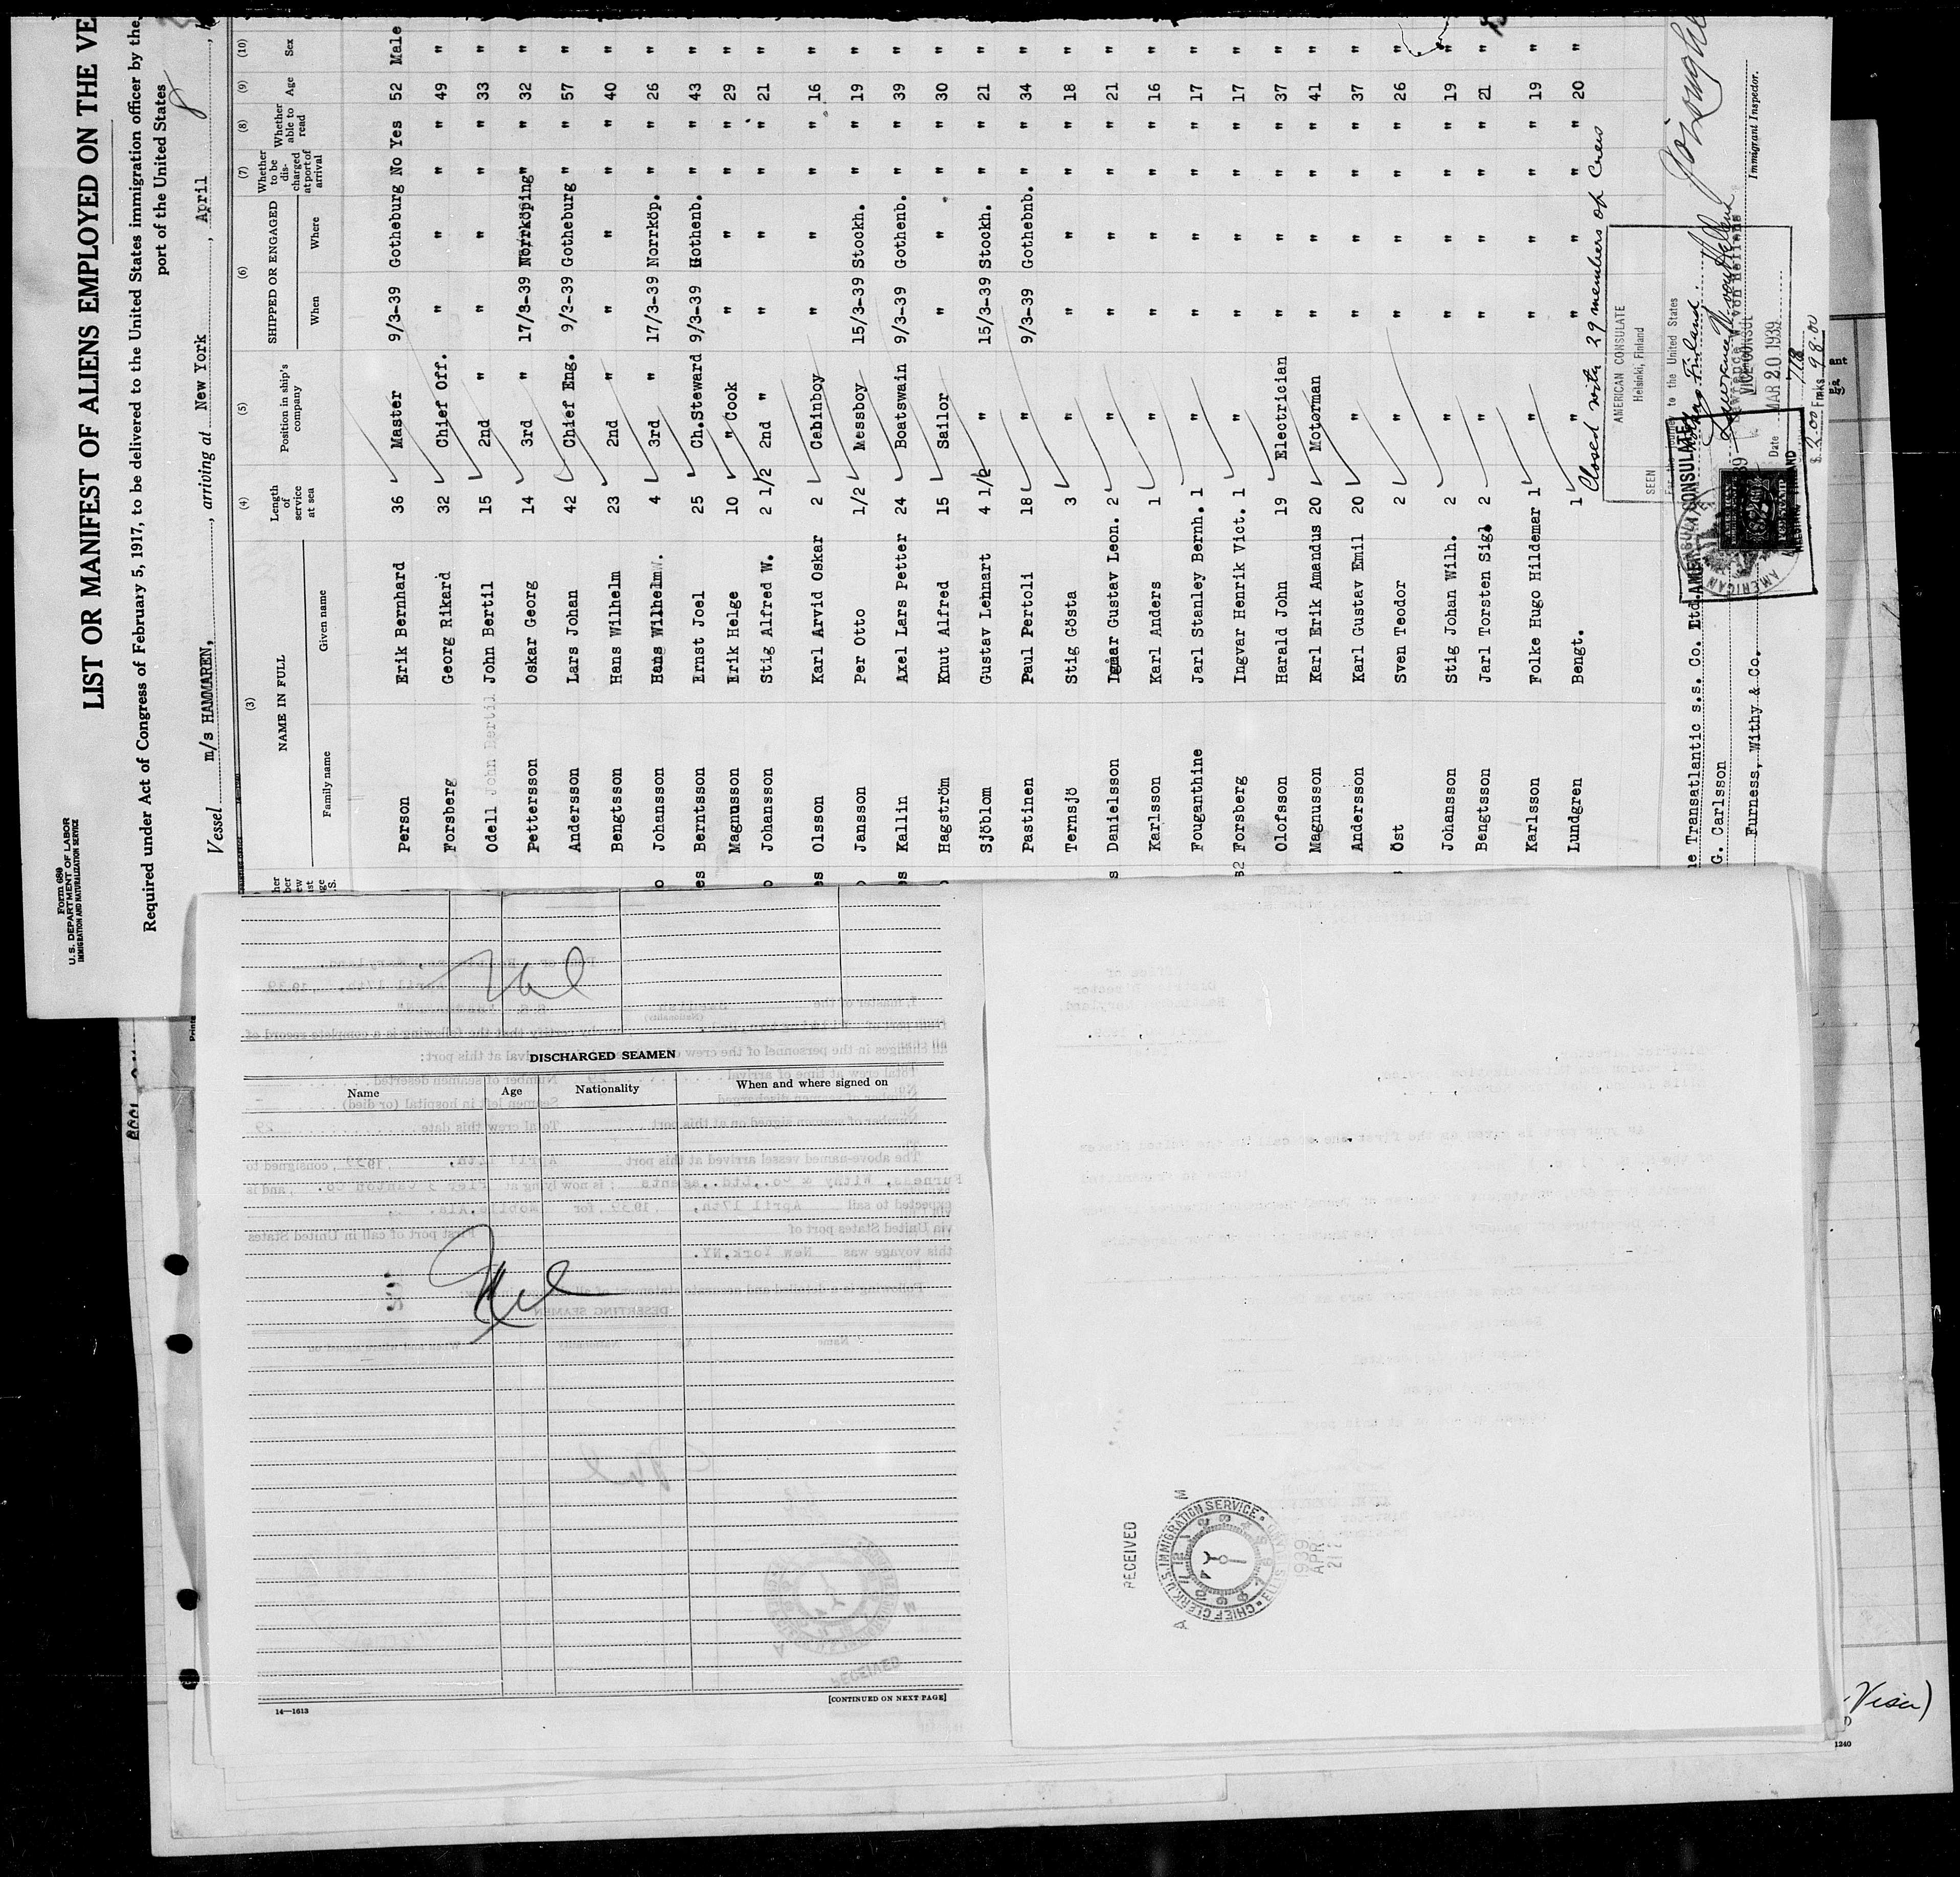 Form 680
U. S. DEPARTMENT OF LABOR
IMMIGRATION AND NATURALIZATION SERVICE
LIST OR MANIFEST OF ALIENS EMPLOYED ON THE VE
Required under Act of Congress of February 5, 1917, to be delivered to the United States immigration officer by the
port of the United States
Vessel m/s HAMMAREN, arriving at New York, April 8
(3) (4) (5) (6) (7) (8) (9) (10)
NAME IN FULL Length of service at sea Position in ship's company SHIPPED OR ENGAGED Whether to be discharged at port of arrival Whether able to read Age Sex
Family name Given name When Where
Person Erik Bernhard 36 Master 9/3-39 Gotheburg No Yes 52 Male
Forsberg Georg Rikard 32 Chief Off. " " " " 49 "
Odell John Bertil 15 2nd " " " " " 33 "
Pettersson Oskar Georg 14 3rd " 17/3-39 Norrköping " " 32 "
Andersson Lars Johan 42 Chief Eng. 9/3-39 Gotheburg " " 57 "
Bengtsson Hans Wilhelm 23 2nd " " " " " 40 "
Johansson Hans Wilhelm W. 4 3rd " 17/3-39 Norrköp. " " 26 "
Berntsson Ernst Joel 25 Ch.Steward 9/3-39 Gothenb. " " 43 "
Magnusson Erik Helge 10 " Cook " " " " 29 "
Johansson Stig Alfred W. 2 1/2 2nd " " " " " 21 "
Olsson Karl Arvid Oskar 2 Cabinboy " " " " 16 "
Jansson Per Otto 1/2 Messboy 15/3-39 Stockh. " " 19 "
Kallin Axel Lars Petter 24 Boatswain 9/3-39 Gothenb. " " 39 "
Hagström Knut Alfred 15 Sailor " " " " 30 "
Sjöblom Gustav Lehnart 4 1/2 " 15/3-39 Stockh. " " 21 "
Pastinen Paul Pertoli 18 " 9/3-39 Gothebnb. " " 34 "
Ternsjö Stig Gösta 3 " " " " " 18 "
Danielsson Ingmar Gustav Leon. 2 " " " " " 21 "
Karlsson Karl Anders 1 " " " " " 16 "
Fouganthine Jarl Stanley Bernh. 1 " " " " " 17 "
Forsberg Ingvar Henrik Vict. 1 " " " " " 17 "
Olofsson Harald John 19 Electrician " " " " 37 "
Magnusson Karl Erik Amandus 20 Motorman " " " " 41 "
Andersson Karl Gustav Emil 20 " " " " " 37 "
Öst Sven Teodor 2 " " " " " 26 "
Johansson Stig Johan Wilh. 2 " " " " " 19 "
Bengtsson Jarl Torsten Sigl 2 " " " " " 21 "
Karlsson Folke Hugo Hildemar 1 " " " " " 19 "
Lundgren Bengt. 1 " " " " " 20 "
Closed with 29 members of Crew
AMERICAN CONSULATE
Helsinki, Finland
SEEN
For the journey to the United States
Lawrence W. von Hellens
VICE CONSUL
Date MAR 20 1939
$ 2.00 Fmks 98.00
Immigrant Inspector.
e Transatlantic s.s. Co. Ltd.
G. Carlsson
Furness, Withy & Co.
DISCHARGED SEAMEN
Name Age Nationality When and where signed on
[CONTINUED ON NEXT PAGE]
14—1613
RECEIVED
CHIEF CLERK, U.S. IMMIGRATION SERVICE
1939
APR
21
Visa)
1240